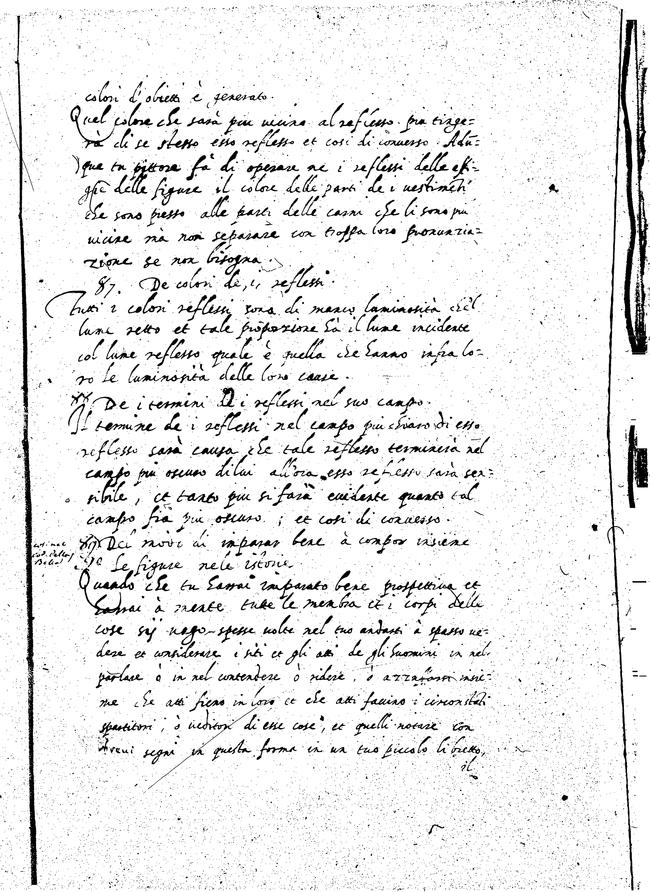 colori d'obietti è generato.
Quel colore che sarà piu vicino al reflesso. piu tinge=
rà di se stesso esso reflesso et cosi di converso. Adu=
que tu pittore fà di operare ne i reflessi delle effi=
gie delle figure il colore delle parti de i vestimēti
che sono presso alle parti delle carni che li sono piu
vicine mà non separare con troppa loro pronunzia=
zione se non bisogna.
87. De colori de i reflessi.
Tutti i colori reflessi sono di manco luminosità che'l
lume retto et tale proporzione hà il lume incidente
col lume reflesso quale è quella che hanno infra lo=
ro le luminosità delle loro cause.
88 De i termini De i reflessi nel suo campo.
Il termine de i reflessi nel campo piu chiaro di esso
reflesso sarà causa che tale reflesso terminerà nel
campo piu oscuro di lui allora esso reflesso sarà sen=
sibile, et tanto piu si farà evidente quanto tal
campo fia piu oscuro; et cosi di converso.
89 Del modo di imparar bene à compor insieme
le figure nele istorie.
Quando che tu harrai imparato bene prospettiva et
harrai à mente tutte le membra et i corpi delle
cose sij vago spesse volte nel tuo andarti à spasso ve=
dere et considerare i siti et gli atti de gli huomini in nel
parlare ò in nel contendere ò ridere, ò azzuffarsi insie=
me che atti fieno in loro et che atti faccino i circonstāti
spartitori, ò veditori di esse cose, et quelli notare con
brevi segni in questa forma in un tuo piccolo libretto,
il